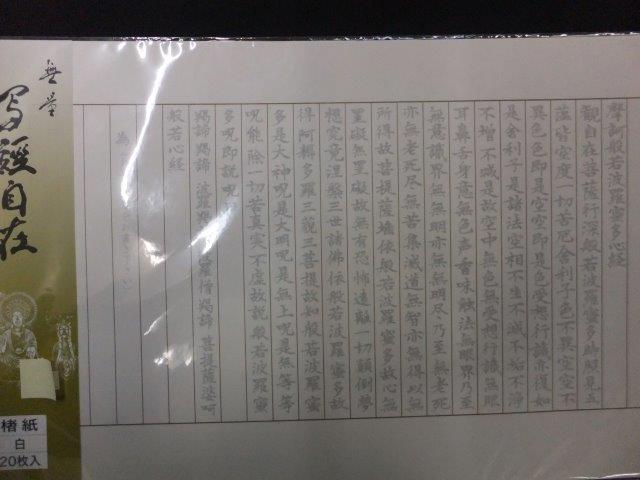 摩訶般若波羅蜜多心経
観自在菩薩行深般若波羅蜜多時照見五
蘊皆空度一切苦厄舎利子色不異空空不
異色色即是空空即是色受想行識亦復如
是舎利子是諸法空相不生不滅不垢不浄
不増不減是故空中無色無受想行識無眼
耳鼻舌身意無色声香味触法無眼界乃至
無意識界無無明亦無無明尽乃至無老死
亦無老死尽無苦集滅道無智亦無得以無
所得故菩提薩埵依般若波羅蜜多故心無
罣礙無罣礙故無有恐怖遠離一切顛倒夢
想究竟涅槃三世諸佛依般若波羅蜜多故
得阿耨多羅三藐三菩提故知般若波羅蜜
多是大神呪是大明呪是無上呪是無等等
呪能除一切苦真実不虚故説般若波羅蜜
多呪即説呪
羯諦羯諦 波羅羯 羅僧羯諦 菩提薩婆呵
般若心経
為
無量
写經自在
楮紙
白
20枚入